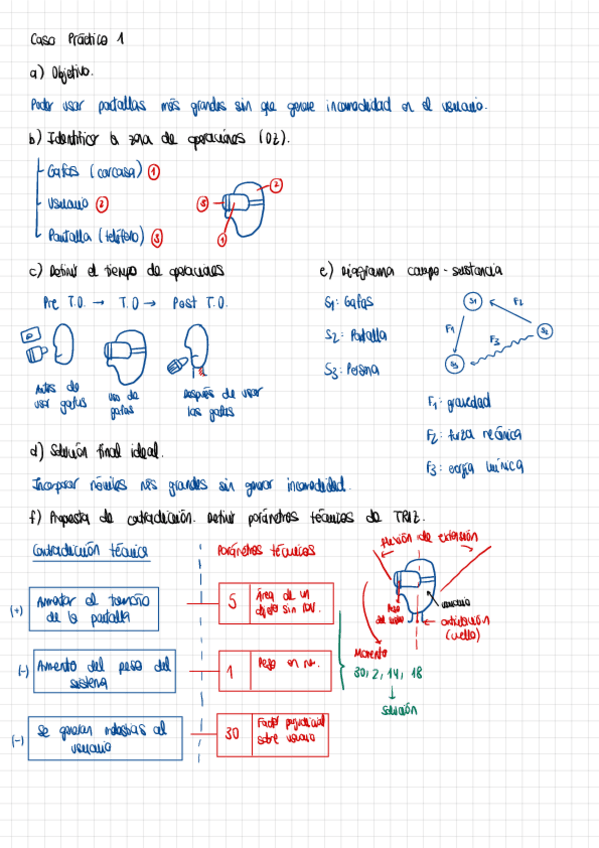 Caso Práctico 1
a) Objetivo.
Poder usar pantallas más grandes sin que genere incomodidad en el usuario.
b) Identificar la zona de operaciones (OZ).
Gafas (carcasa) 1
Usuario 2
Pantalla (teléfono) 3
2
3
1
c) Definir el tiempo de operaciones
Pre T.O. → T.O → Post T.O.
Antes de
usar gafas
uso de
gafas
Después de usar
las gafas
e) Diagrama campo-sustancia
S1: Gafas
S2: Pantalla
S3: Persona
S1
F2
F1
S2
F3
S3
F1: gravedad
F2: fuerza mecánica
F3: energía lumínica
d) Solución final ideal.
Incorporar móviles más grandes sin generar incomodidad.
f) Propuesta de contradicción. Definir parámetros técnicos de TRIZ.
Contradicción técnica
Parámetros técnicos
(+) Aumentar el tamaño
de la pantalla
5 Área de un
objeto sin mov.
(-) Aumento del peso del
sistema
1 Peso en mv.
(-) Se generan molestias al
usuario
30 Factor perjudicial
sobre usuario
flexión de extensión
Peso
usuario
articulación
(cuello)
Momento
30, 2, 14, 18
↓
solución